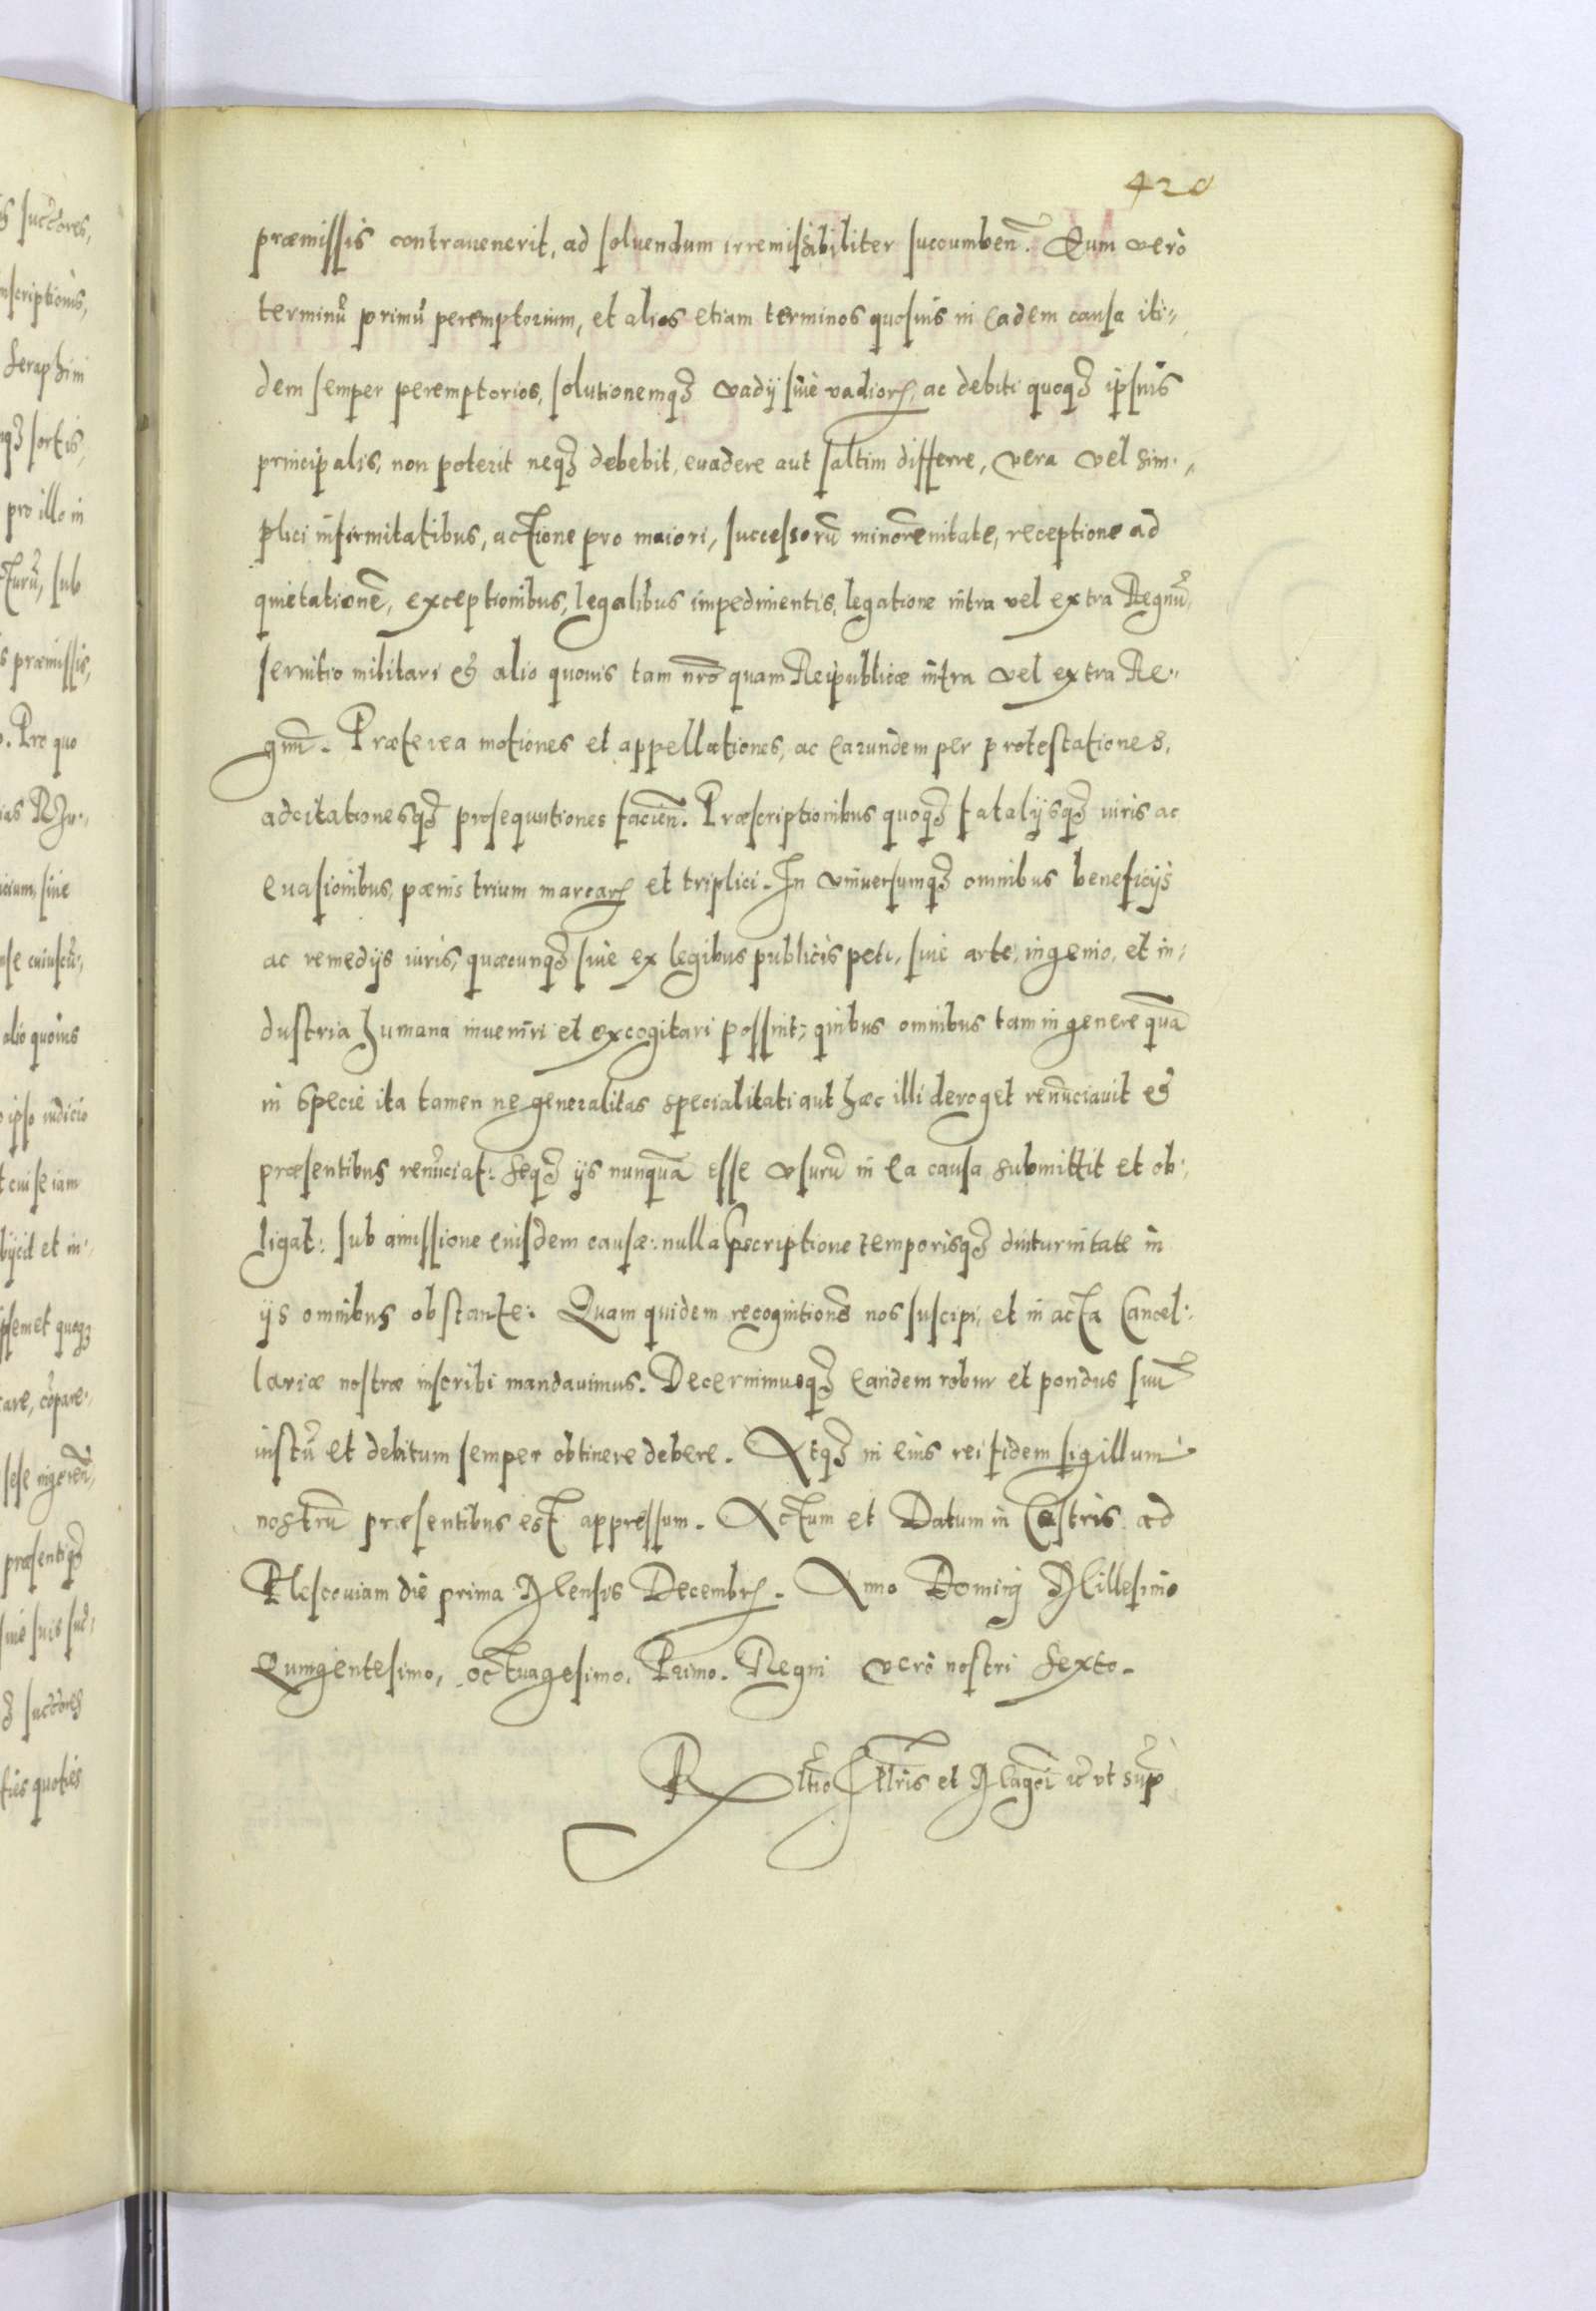 420
præmissis contrauenerit, ad soluendum irremissibiliter succumbeñ. Eum verò
terminũ primũ peremptorium, et alios etiam terminos quosuis in eadem causa iti-
dem semper peremptorios, solutionemqꝫ vadij siue vadiorꝝ, ac debiti quoqꝫ ipsius
principalis, non poterit neqꝫ debebit, euadere aut saltim differre, vera vel sim-
plici infirmitatibus, actione pro maiori, successorũ minorẽnitate, receptione ad
quietationẽ, exceptionibus, legalibus impedimentis, legatione intra vel extra Regnũ,
seruitio militari et alio quouis tam nr̃o quam Reipublicæ intra vel extra Re-
gnũ. Præterea motiones et appellationes, ac earundem per protestationes,
adcitationesqꝫ prosequutiones facieñ. Præscriptionibus quoqꝫ fatalijsqꝫ iuris ac
euasionibus, pœnis trium marcarꝝ et triplici. In vniuersumqꝫ omnibus beneficijs
ac remedijs iuris, quæcunqꝫ siue ex legibus publicis peti, siue arte, ingenio, et in-
dustria humana inueniri et excogitari possint, quibus omnibus tam in genere quã
in specie ita tamen ne generalitas specialitati aut hæc illi deroget renũciauit et
præsentibus renũciat: seqꝫ ijs nunquã esse vsurũ in ea causa submittit et ob-
ligat: sub amissione eiusdem causæ: nulla p̃scriptione temporisqꝫ diuturnitate in
ijs omnibus obstante. Quam quidem recognitionẽ nos suscipi, et in acta Cancel-
lariæ nostræ inscribi mandauimus. Decernimusqꝫ eandem robur et pondus suũ
iustũ et debitum semper obtinere debere. Atqꝫ in eius rei fidem sigillum
nostrũ præsentibus est appressum. Actum et Datum in Castris ad
Plescouiam die prima Mensis Decembrꝭ. Anno Domini Millesimo
Quingentesimo, octuagesimo, Primo. Regni verò nostri sexto.
Rltĩo Illris et Magci ꝛc̃ vt sup̃